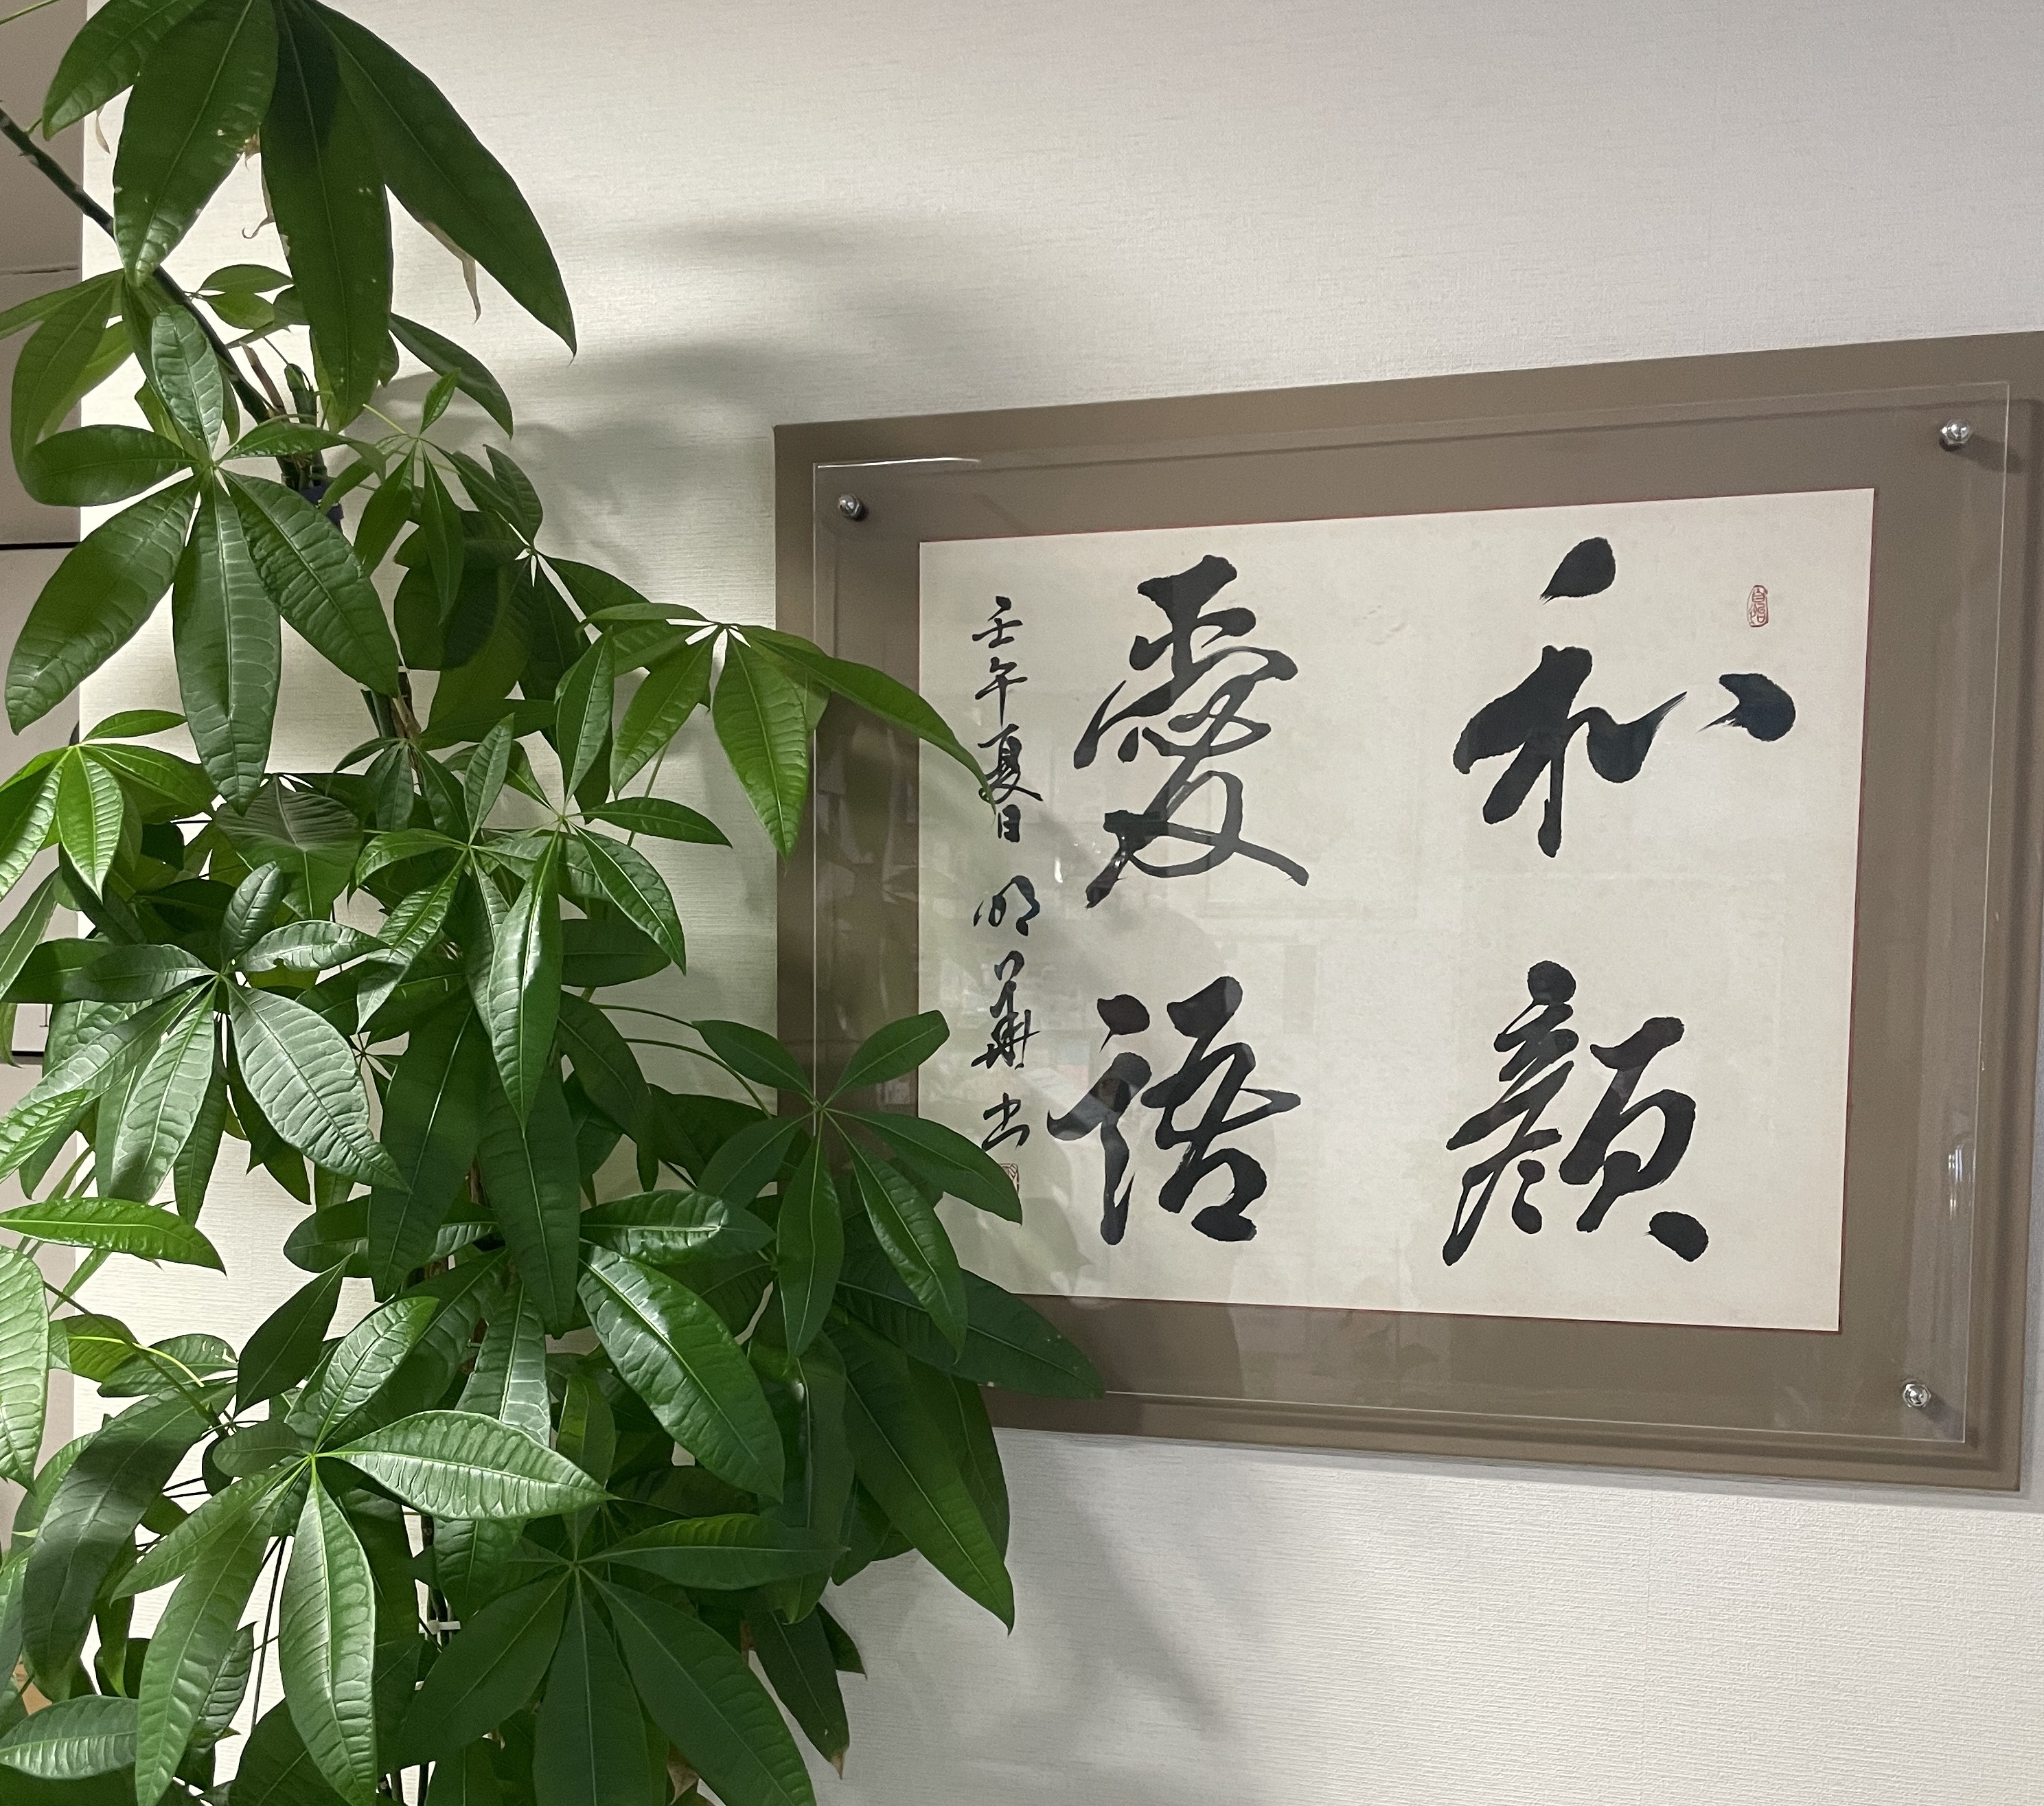 和顔
愛語
壬午夏日 明華书